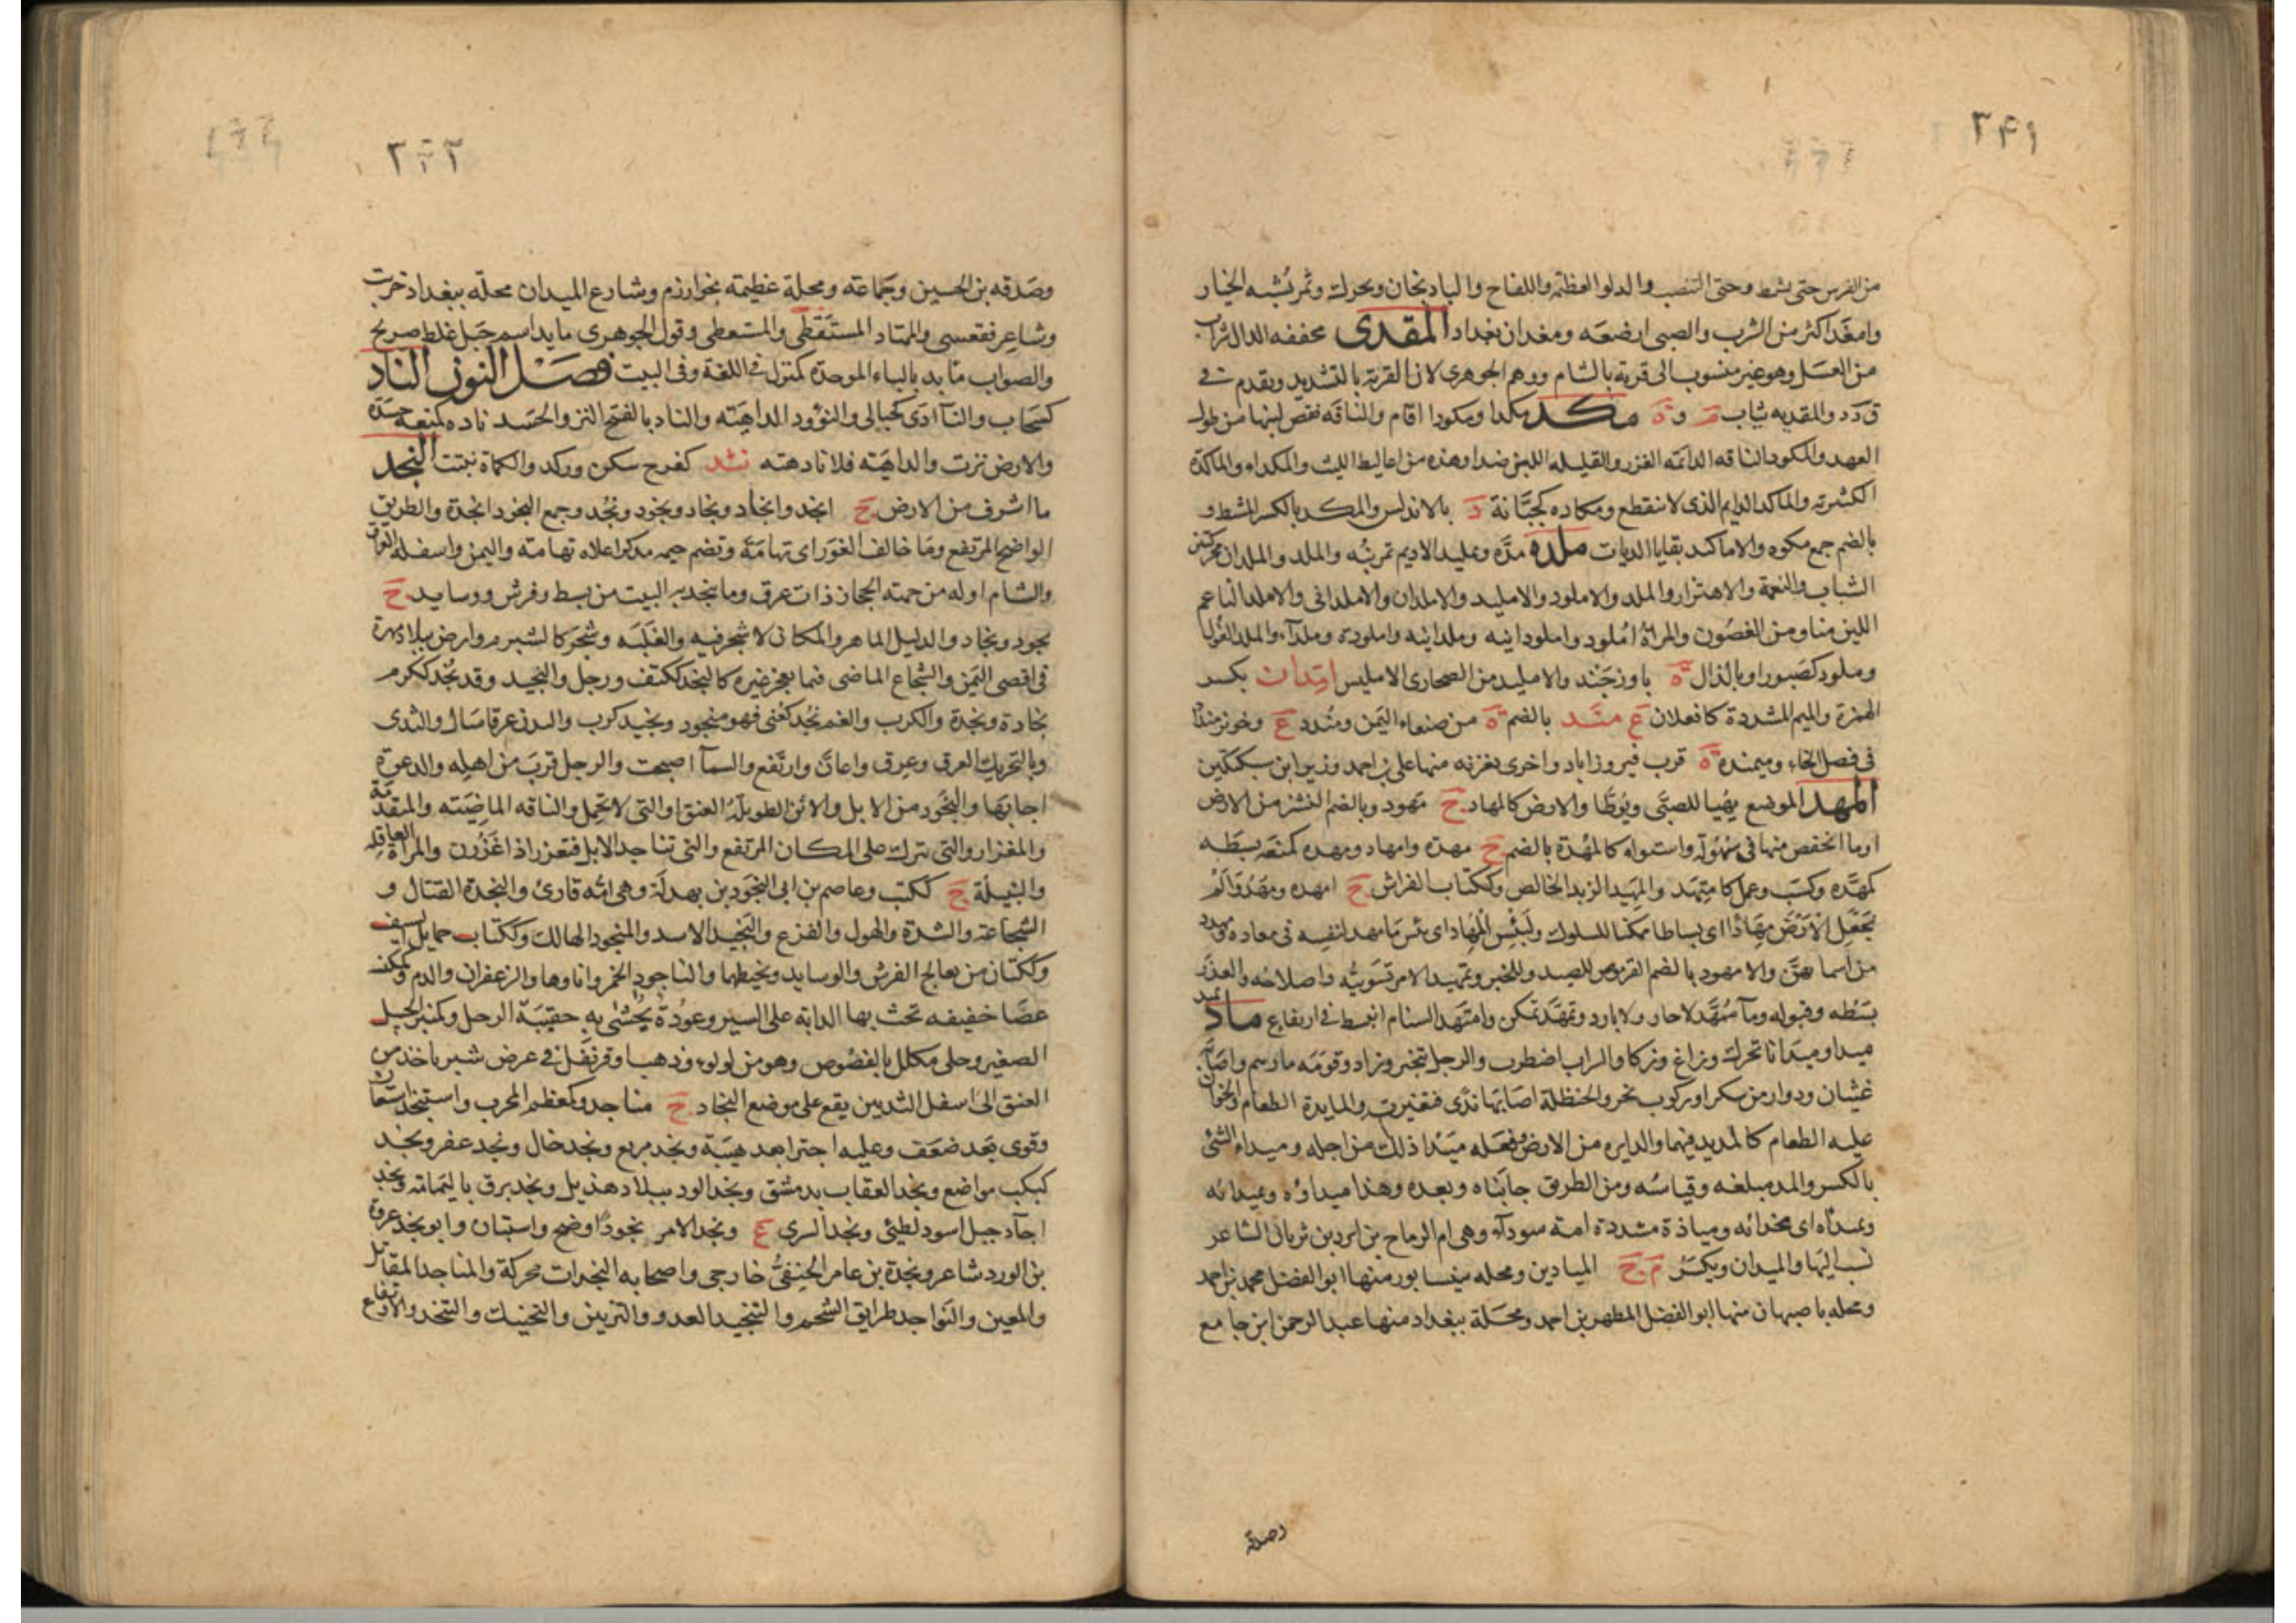 ٣٤١
من الفرس حتى يشمط وحتى التنصب والدلو العظيمة واللفاح والباذنجان ويحرك وثمر يشبه الخيار
وامغد اكثر من الشرب والصبى ارضعه ومغدان بغداد المقدى مخففه الدال شراب
من العسل وهو غير منسوب الى قرية بالشام ووهم الجوهرى لان القرية بالتشديد وتقدم فى
ق د د والمقديه ثياب م و ة مكد مكدا ومكودا اقام والناقه نقص لبنها من طول
العهد والمكود الناقه الدائمه الغزر والقليله اللبن ضد او هذه من اغاليط الليث والمكداء والماكدة
الكثيرته والماكد الدايم الذى لا ينقطع ومكاده كجبانة د بالاندلس والمكد بالكسر المشط و
بالضم جمع مكود والاماكد بقايا الديات ملده مدّه وتمليد الاديم تمرينه والملد والملدان محركتين
الشباب والنعمة والاهتزاز والملد والاملود والامليد والاملدان والاملدانى والاملد الناعم
اللين منا ومن الغصون والمراة املود واملودانيه وملدانيه واملودة وملداء والملد الغول
وملود كصبور او بالذال ة باوزجند والامليد من الصحارى الامليس امّدان بكسر
الهمزة والميم المشددة كافعلان ع مند بالضم ة من صنعاء اليمن ومندد ع وخويز منداد
فى فصل الخاء وميمندة قرب فيروزاباد واخرى بغزنه منها على بن احمد وزير ابن سبكتكين
المهد الموضع يهيا للصبّى ويوطّا والارض كالمهاد ج مهود وبالضم النشز من الارض
او ما انخفض منها فى سهولة واستواء كالمهدة بالضم ج مهدة وامهاد ومهده كمنعه بسطه
كمهّده وكسب وعمل كامتهد والمهيد الزبد الخالص وككتاب الفراش ج امهده ومهد والم
نجعل الارض مهادا اى بساطا ممكنا للسلوك ولبئس المهاد اى بئس ما مهد لنفسه فى معاده ومهدد
من اسمائهن والامهود بالضم القرموص للصيد وللخبز وتمهيد الامر تسويته واصلاحه والعذر
بسطه وقبوله وماء ممهّد لا حار ولا بارد وتمهّد تمكن وامتهد السنام انبسط فى ارتفاع ماد يميد
ميدا وميدانا تحرك وزاغ وزكا والسراب اضطرب والرجل تبختر وزاد وقومه مارهم واصابه
غثيان ودوار من سكر او ركوب بحر والحنظلة اصابها ندّى فتغيرت والمايدة الطعام والخوان
عليه الطعام كالميدة فيهما والدايره من الارض وفعله ميدا ذلك من اجله وميداء الشئ
بالكسر والمد مبلغه وقياسه ومن الطريق جانباه وبعده وهذا ميداؤه وبميدائه
وبمداه اى بحذائه وميادة مشددة امة سوداء وهى ام الرماح بن ابرد بن ثربان الشاعر
نسب اليها والميدان ويكسر م ج الميادين ومحله بنيسابور منها ابو الفضل محمد بن احمد
ومحله باصبهان منها ابو الفضل المطهر بن احمد ومحلة ببغداد منها عبد الرحمن ابن جامع
وصدقه
٣٤٢
وصدقه بن الحسين وجماعة ومحلة عظيمة بخوارزم وشارع الميدان محلّه ببغداد خربت
وشاعر فقعسى والممتاد المستعطِى والمستعطى وقول الجوهرى مايد اسم جبل غلط صريح
والصواب مابد بالباء الموحدة كمنزل فى اللغة وفى البيت فصل النون الناد
كسحاب والنآدى كحبالى والنؤود الداهيه والناد بالفتح النز والحسد ناده كمنعه حسده
والارض نزت والداهية فلانا دهته نثد كفرح سكن وركد والكماة نبتت النجد
ما اشرف من الارض ج انجد وانجاد ونجاد ونجود ونُجُد وجمع النجود انجدة والطريق
الواضح المرتفع وما خالف الغور اى تهامة وتضم جيمه مذكر اعلاه تهامة واليمن واسفله العراق
والشام اوله من جهة الحجاز ذات عرق وما ينجد به البيت من بسط وفرش ووسايد ج
نجود ونجاد والدليل الماهر والمكان لا شجر فيه والغلبه وشجر كالشبرم وارض ببلاد مهرة
فى اقصى اليمن والشجاع الماضى فيما يعجز غيره كالنجد ككتف ورجل والنجيد وقد نجد ككرم
نجادة ونجدة والكرب والغم نجد كعنى فهو منجود ونجيد كرب والبدن عرقا سال والثدى
وبالتحريك العرق وعرق واعان وارتفع والسماء اصحت والرجل قرب من اهله والدعوة
اجابها والنجود من الابل والاتن الطويلة العنق او التى لا تحمل والناقه الماضيه والمتقدمة
والمغزار والتى تبرك على المكان المرتفع والتى تناجد الابل فتغزر اذا غزرن والمراة العاقله
والنبيلة ج ككتب وعاصم بن ابى النجود بن بهدلة وهى امّه قارئ والنجدة القتال و
الشجاعة والشدة والهول والفزع والنجيد الاسد والمنجود الهالك وككتاب حمايل السيف
وككتان من يعالج الفرش والوسايد ويخيطها والناجود الخمر واناوها والزعفران والدم وكمكنسة
عصا خفيفه تحث بها الدابه على السير وعودة يحشى به حقيبة الرحل وكمنبر الجبل
الصغير وحلى مكلل بالفصوص وهو من لولو وذهب او قرنفل فى عرض شبر ياخذ من
العنق الى اسفل الثديين يقع على موضع النجاد ج مناجد وكمعظم المجرب واستنجد استعان
وقوى بعد ضعف وعليه اجترا بعد هيبة ونجد مريع ونجد خال ونجد عفر ونجد
كبكب مواضع ونجد العقاب بدمشق ونجد الود ببلاد هذيل ونجد برق باليمامة ونجد
اجاء جبل اسود لطيئ ونجد السرى ع ونجد الامر نجودا وضح واستبان وابو نجد عروة
بن الورد شاعر ونجدة بن عامر الحنفىّ خارجى واصحابه النجدات محركة والمناجد المقاتل
والمعين والنواجد طرايق الشحم والتنجيد العدو والتزيين والتحنيك والتنجد الارتفاع